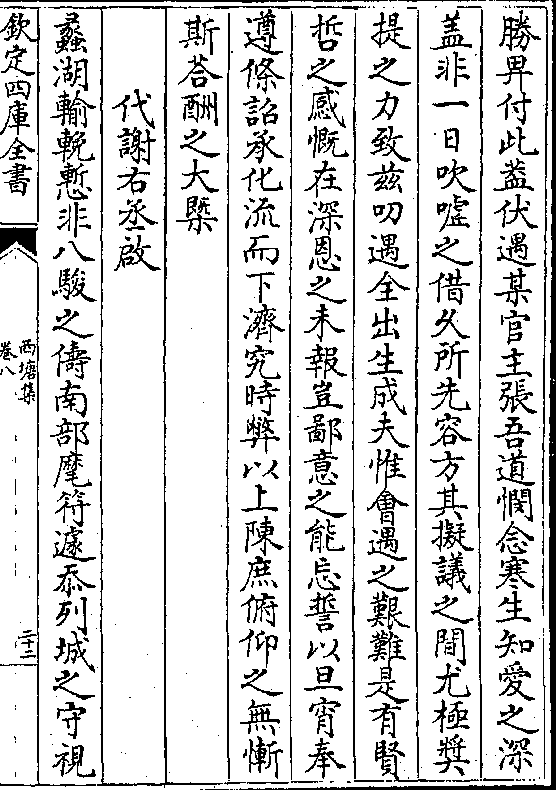 勝畀付此蓋伏遇某官主張吾道憫念寒生知愛之深
盖非一日吹嘘之借久所先容方其擬議之間尤極奬
提之力致兹叨遇全出生成夫惟㑹遇之艱難是有賢
哲之感慨在深恩之未報豈鄙意之能忘誓以旦宵奉
遵條詔承化流而下濟究時弊以上陳庶俯仰之無慚
斯荅酬之大槩
代謝右丞啟
蠡湖輸輓慙非八駿之儔南部麾符遽忝列城之守視
欽定四庫全書
西塘集
卷八
二十二